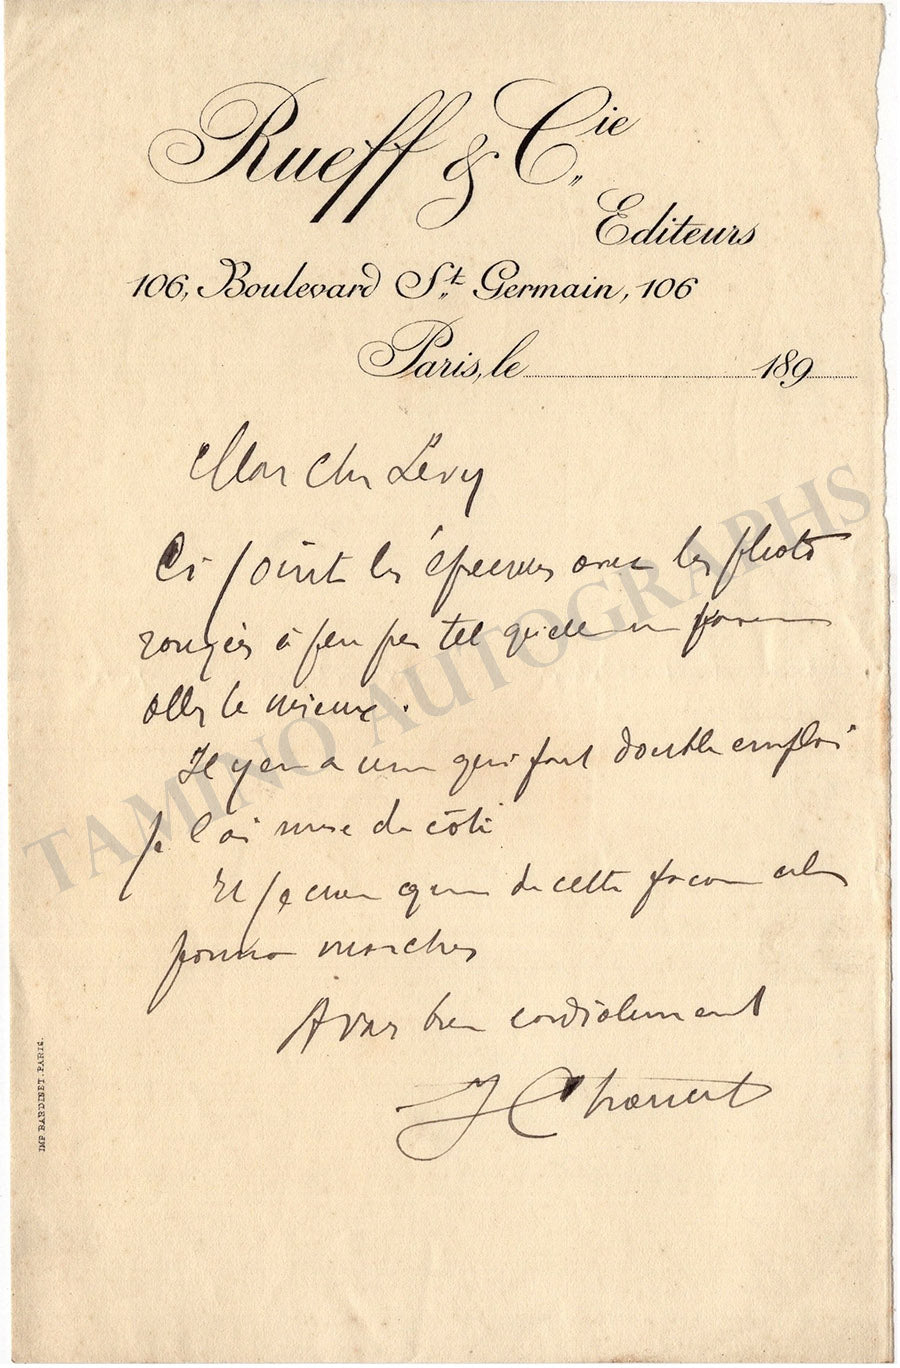 Rueff & Cie
Editeurs
106, Boulevard St. Germain, 106
Paris, le 189
Mon cher Levy
Ci joint les épreuves avec les photos
rangées à peu près tel qu'elle
aller le mieux.
Il y en a une qui fait double emploi
je l'ai mise de côté
Et je crois que de cette façon cela
pourra marcher
A vous bien cordialement
J Charcot
IMP. BARDINET. PARIS.
TAMINO AUTOGRAPHS